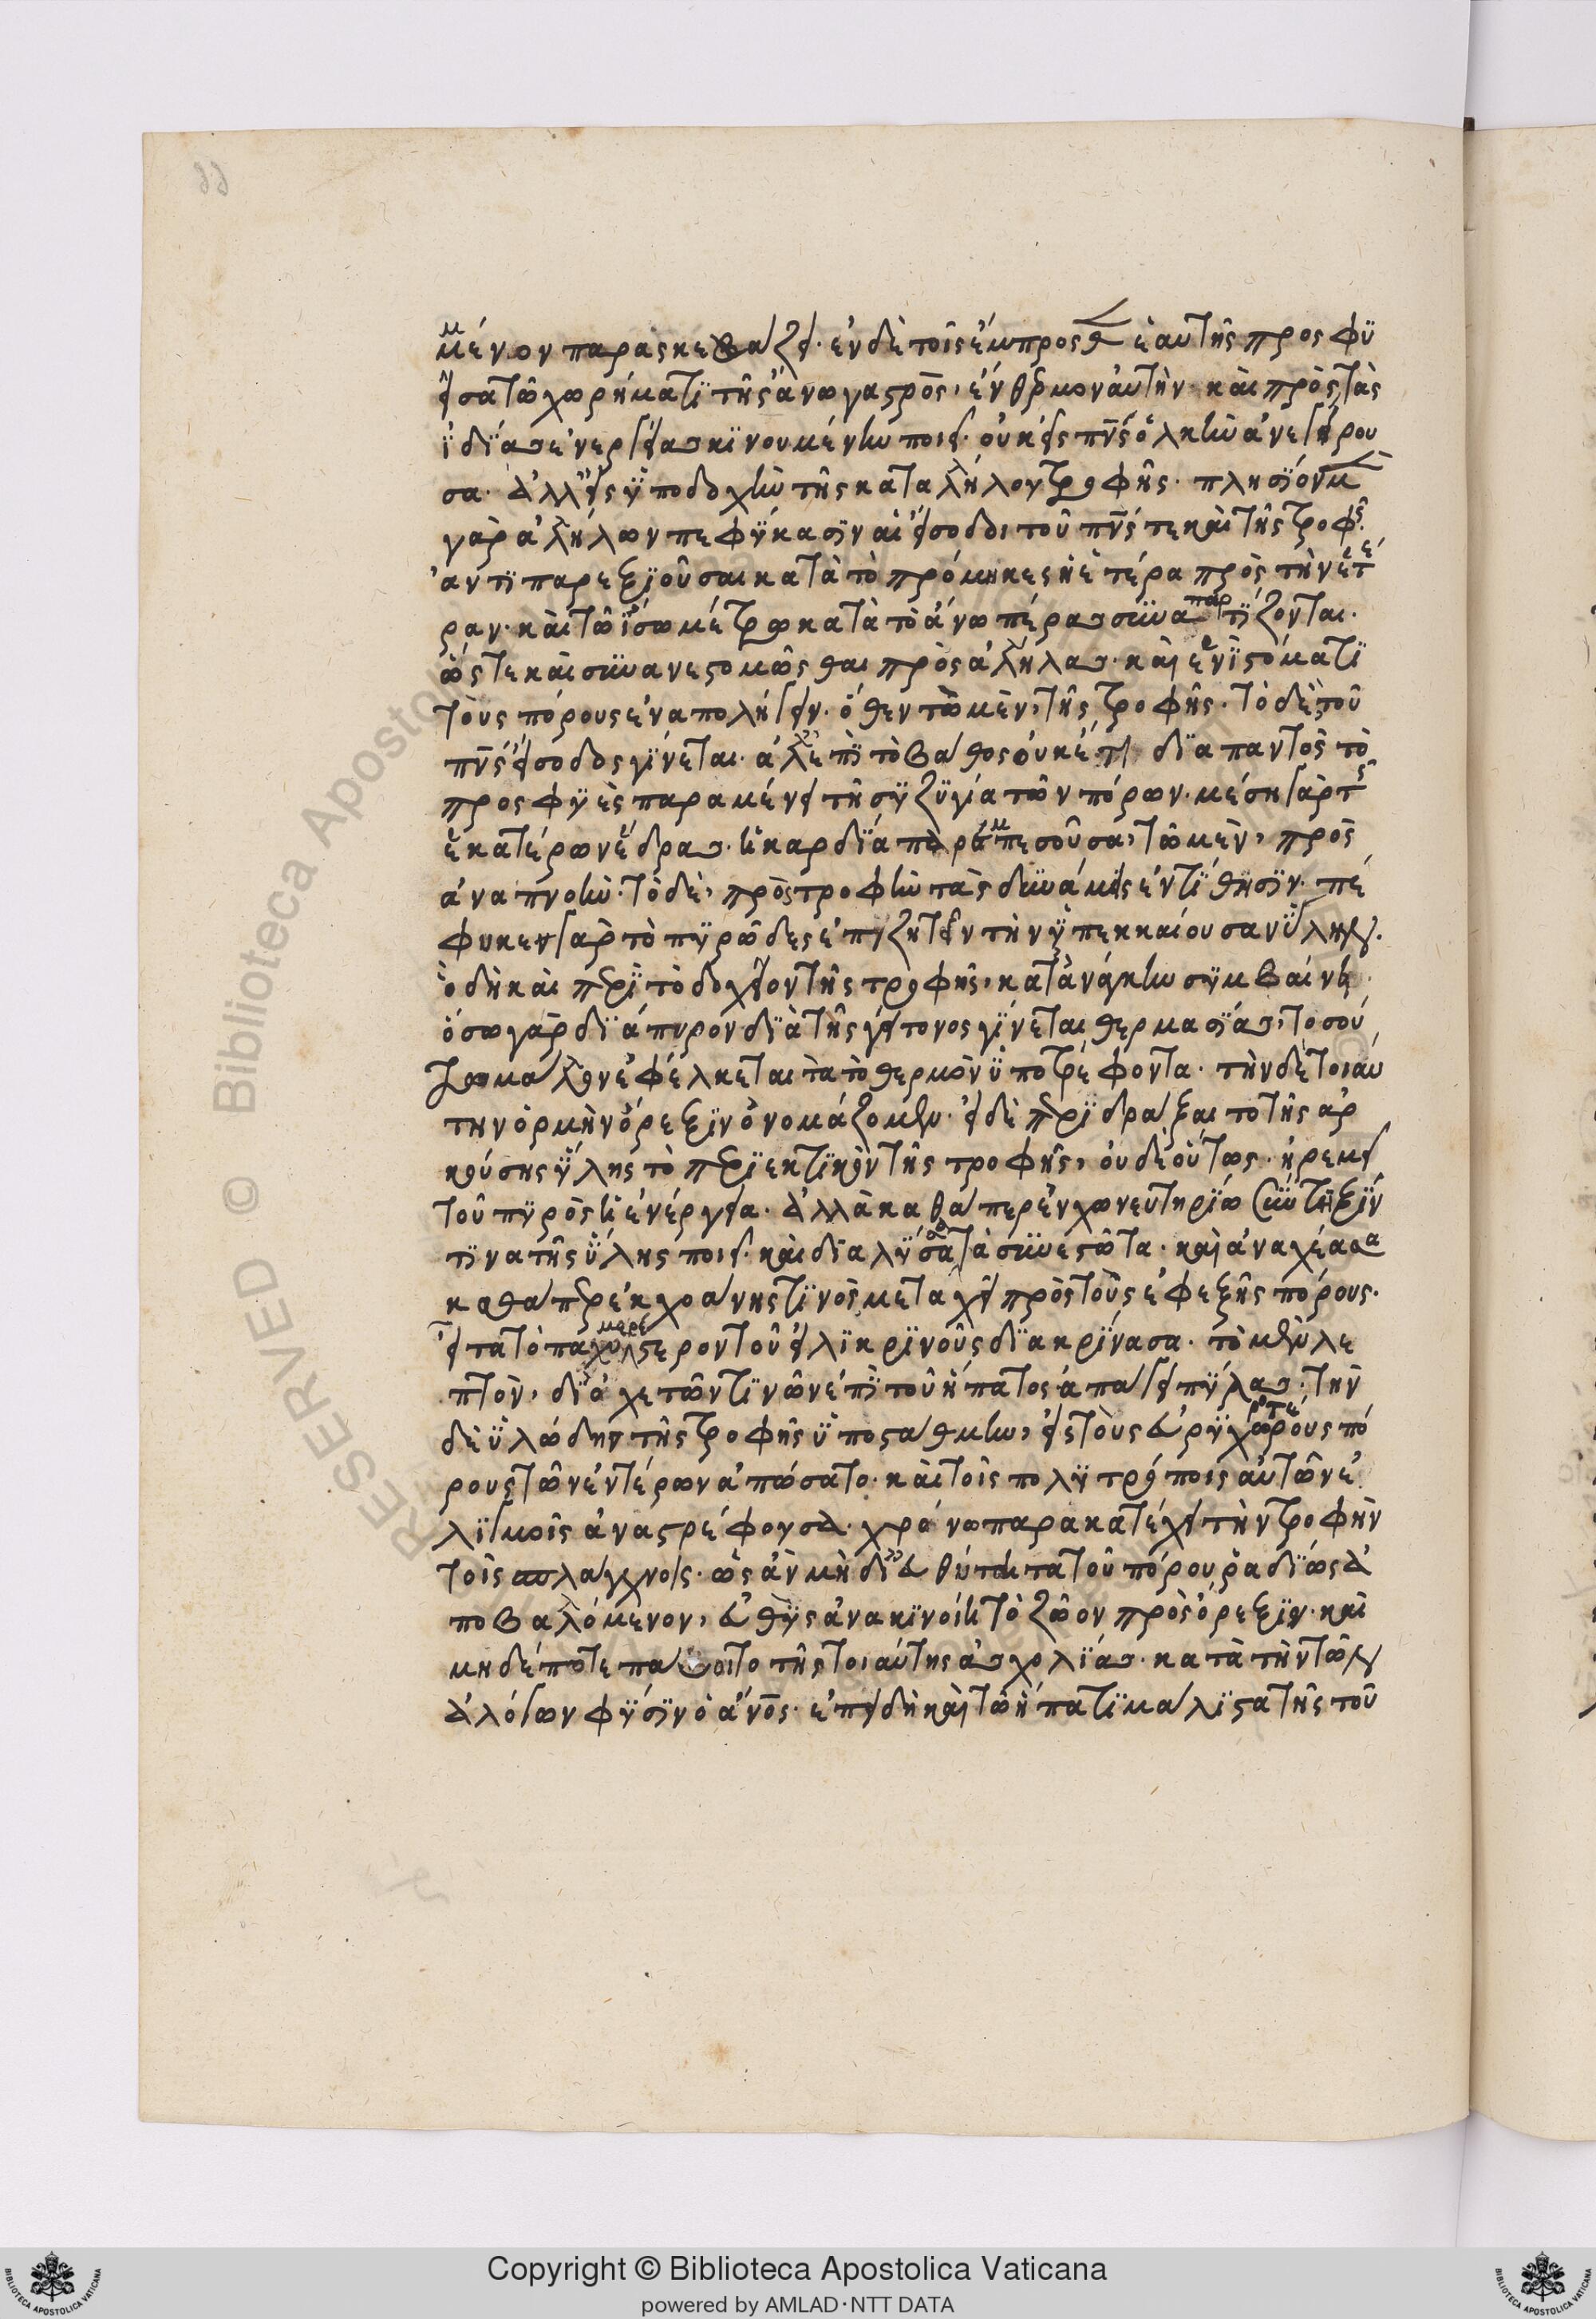 μένον παρασκευάζει· ἐν δὲ τοῖς ἔμπροσθεν ἑαυτῆς προσφϋ
εῖσα τῶ χωρήματϊ τῆς ἄνω γαστρὸς, ἔνθερμον αὐτὴν καὶ πρὸς τὰς
ἰδϊας ἐνεργείας κϊνουμένην ποιεῖ· οὐκ εἰς πνς ὁλκὴν ἀνεγείρου
σα· ἀλλ' εἰς ϋποδοχὴν τῆς καταλλήλου τροφῆς· πλησϊον μὲν
γὰρ ἀλλήλων πεφϋκασϊν αἱ εἴσοδοι τοῦ πνς τε καὶ τῆς τροφῆς
ἀντϊπαρεξϊοῦσαι κατὰ τὸ πρόμηκες ἡ ἑτέρα πρὸς τὴν ἑτέ
ραν· καὶ τῶ ἴσω μέτρω κατὰ τὸ ἄνω πέρας συναπαρτϊζονται·
ὥστε καὶ συνανεστομῶσθαι πρὸς ἀλλήλας· καὶ ἑνὶ στόματϊ
τοὺς πόρους ἐναπολήγειν· ὅθεν τῶ μὲν, τῆς τροφῆς· τὸ δὲ, τοῦ
πνς εἴσοδος γϊνεται· ἀλλ' ἐπϊ τὸ βάθος οὐκέτι δϊαπαντὸς τὸ
προσφϋὲς παραμένει τῆ συζϋγϊα τῶν πόρων· μέση γὰρ τῆς
ἑκατέρων ἕδρας ἡ καρδϊα παρεμπεσοῦσα, τῶ μὲν, πρὸς
ἀναπνοὴν· τὸ δὲ, πρὸς τροφὴν τὰς δυνάμεις ἐντϊθησϊν· πέ
φυκεν γὰρ τὸ πϋρῶδες ἐπιζητεῖν τὴν ϋπεκκαίουσαν ὕλην·
ὃ δὴ καὶ περὶ τὸ δοχεῖον τῆς τροφῆς, κατ' ἀνάγκην συμβαίνει·
ὅσω γὰρ δϊάπυρον δϊὰ τῆς γείτονος γϊνεται θερμασϊας, τοσού
τω μᾶλλον ἐφέλκεται τὰ τὸ θερμὸν ὑποτρέφοντα· τὴν δὲ τοιαύ
την ὁρμὴν ὄρεξϊν ὀνομάζομεν· εἰ δὲ περϊδράξαιτο τῆς ἀρ
κούσης ὕλης τὸ περϊεκτϊκὸν τῆς τροφῆς, οὐδὲ οὕτως ἠρεμεῖ
τοῦ πϋρὸς ἡ ἐνέργεια· ἀλλὰ καθάπερ ἐν χωνευτηρϊω σύντηξϊν
τϊνα τῆς ὕλης ποιεῖ· καὶ διαλύσασα τὰ συνεστῶτα· καὶ ἀναχέασα
καθάπερ ἐκ χοάνης τϊνὸς μεταχεῖ πρὸς τοὺς ἐφεξῆς πόρους·
εἶτα τὸ παχυμερέστερον τοῦ εἰλϊκρϊνοῦς δϊακρϊνασα· τὸ μὲν λε
πτὸν, δϊ' ὀχετῶν τϊνῶν ἐπϊ τοῦ ἥπατος ἀπάγει πϋλας· τὴν
δὲ ὑλώδην τῆς τροφῆς ὑποσταθμην, εἰς τοὺς εὐρϋχωροτέρους πό
ρους τῶν ἐντέρων ἀπώσατο· καὶ τοῖς πολϋτρόποις αὐτῶν ἑ
λϊγμοῖς ἀναστρέφουσα· χρόνω παρακατέχει τὴν τροφὴν
τοῖς σπλάγχνοις· ὡς ἂν μὴ δι' εὐθύτητα τοῦ πόρου ῥαδϊως ἀ
ποβαλόμενον, εὐθϋς ἀνακϊνοίη τὸ ζῶον πρὸς ὄρεξϊν· καὶ
μηδέποτε παύοιτο τῆς τοιαύτης ἀσχολϊας κατὰ τὴν τῶν
ἀλόγων φϋσϊν ὁ ἄνος· ἐπειδὴ καὶ τῶ ἥπατϊ μάλϊστα τῆς τοῦ